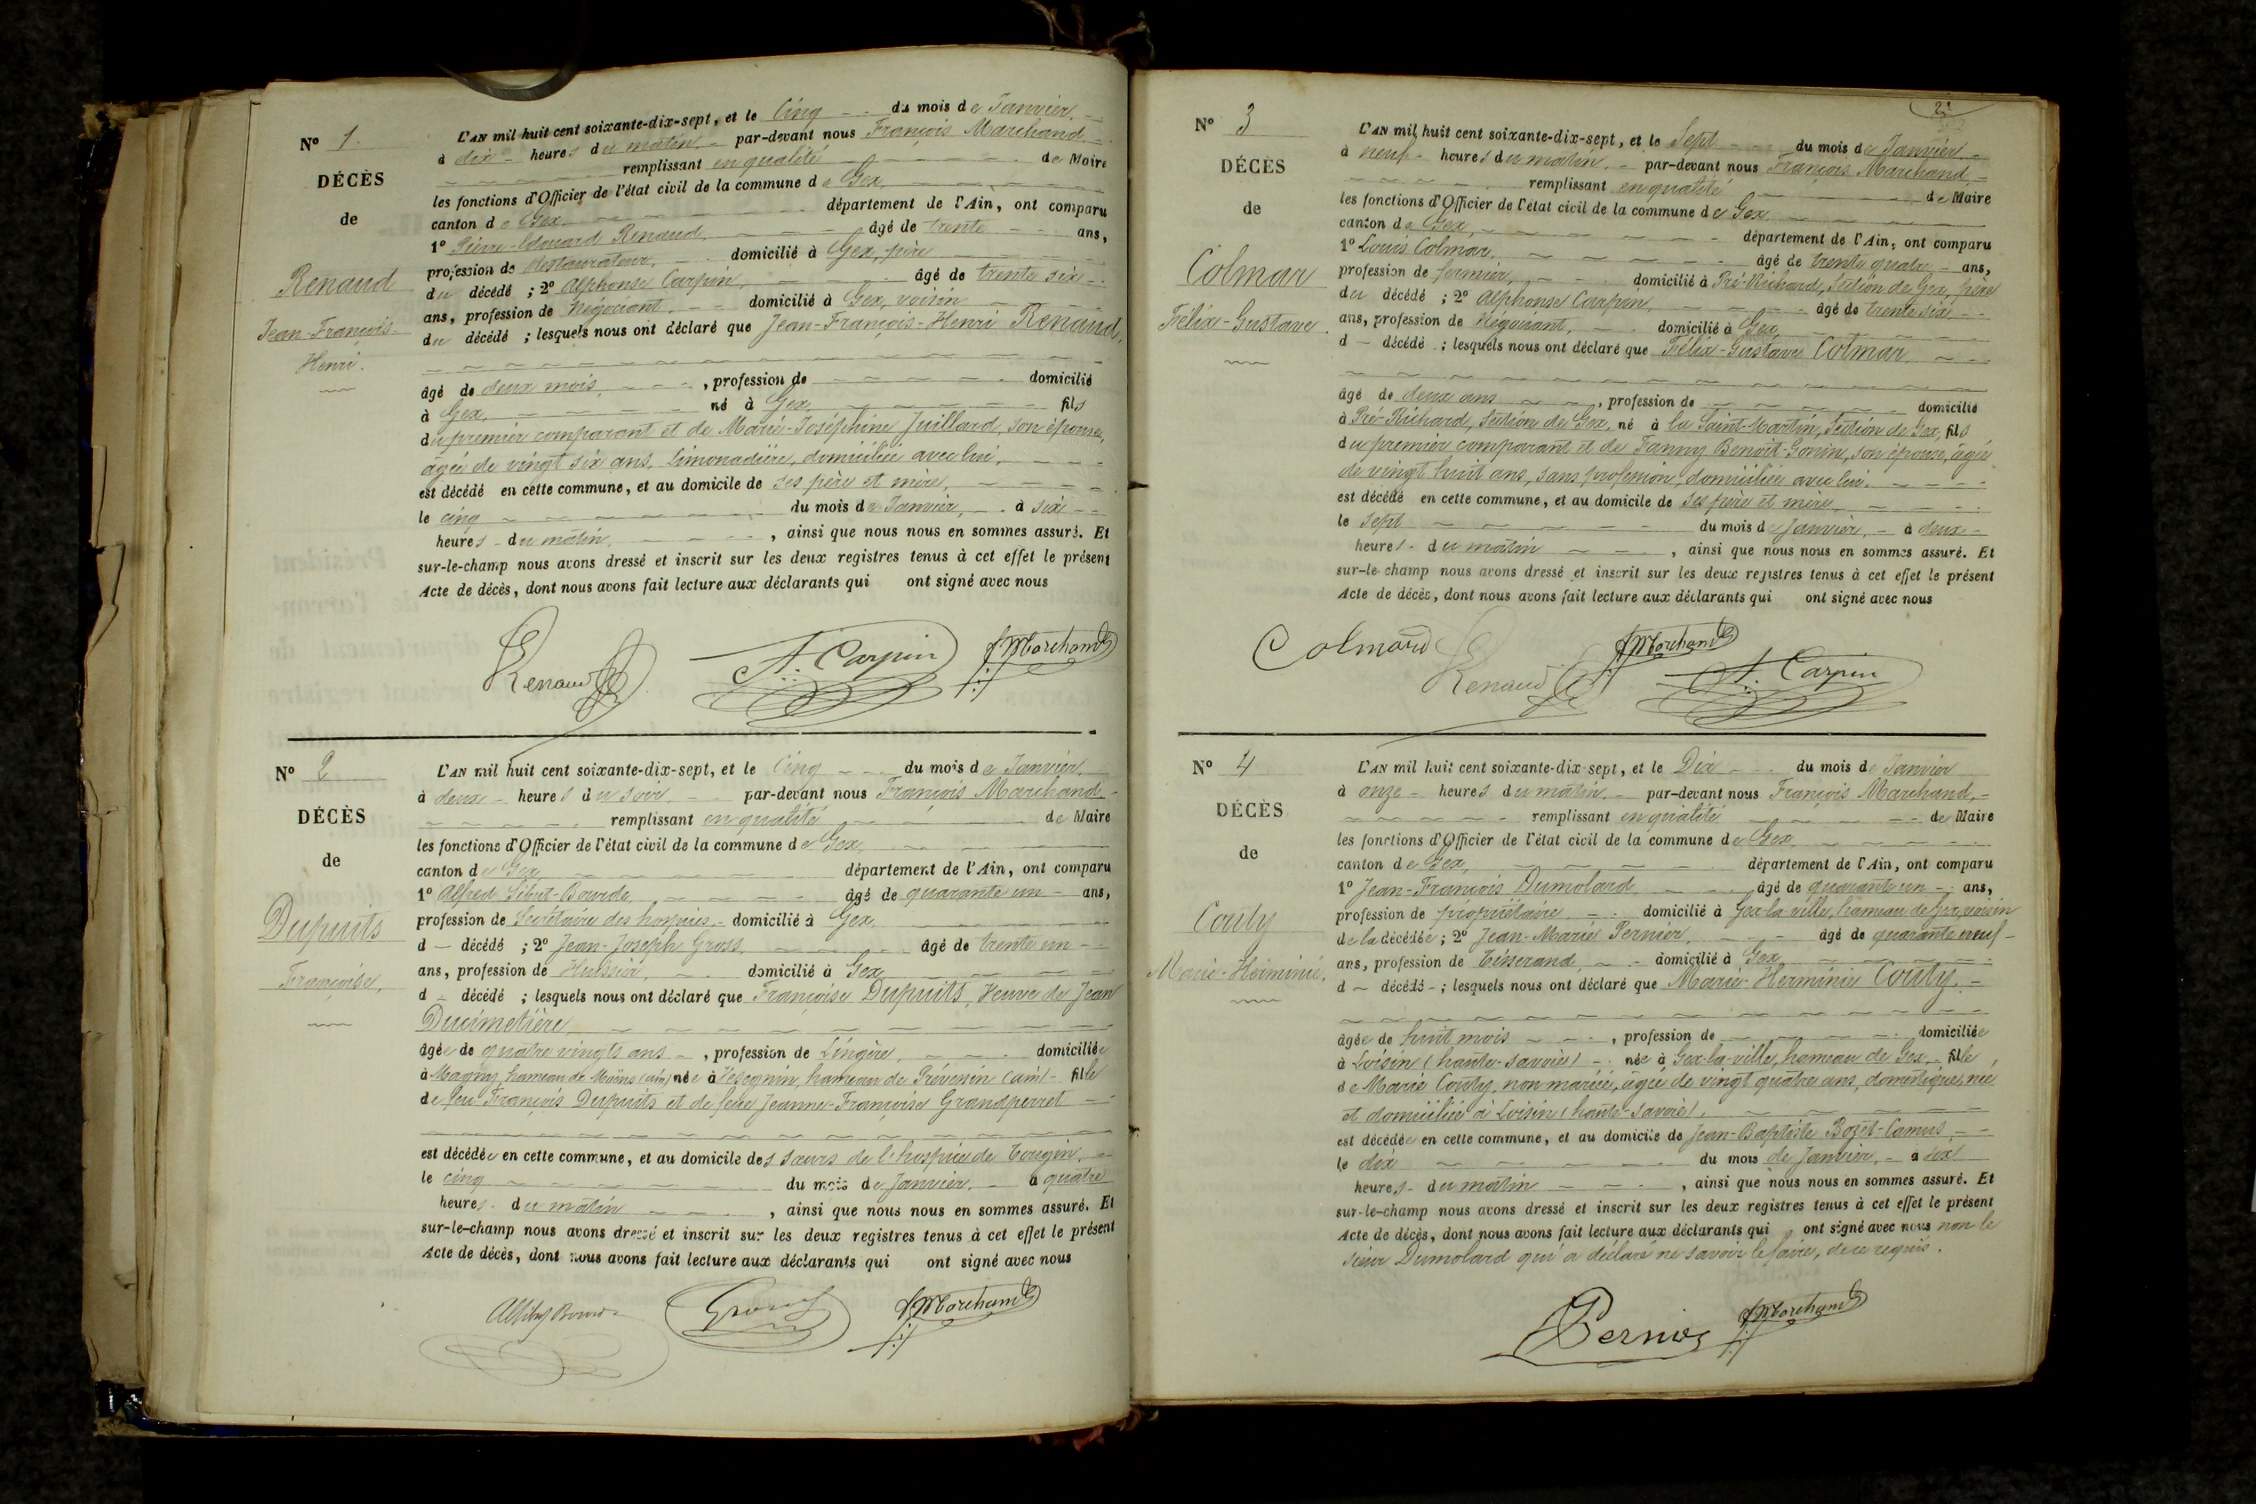 Nº 1.
DÉCÈS
de
Renaud
Jean-François-
Henri.
L'AN mil huit cent soixante-dix-sept, et le Cinq du mois de Janvier.
à dix heures du matin par-devant nous François Marchand
remplissant en qualité de Maire
les fonctions d'Officier de l'état civil de la commune de Gex
canton de Gex département de l'Ain, ont comparu
1º Pierre-Edouard Renaud âgé de trente ans,
profession de Restaurateur, domicilié à Gex, père
du décédé ; 2º Alphonse Carpin, âgé de trente six
ans, profession de Négociant, domicilié à Gex, voisin
du décédé ; lesquels nous ont déclaré que Jean-François-Henri Renaud,
âgé de deux mois, profession de domicilié
à Gex, né à Gex fils
du premier comparant et de Marie-Joséphine Juillard, son épouse,
âgée de vingt six ans, Limonadière, domiciliée avec lui,
est décédé en cette commune, et au domicile de ses père et mère,
le cinq du mois de Janvier, à six
heures du matin, ainsi que nous nous en sommes assuré. Et
sur-le-champ nous avons dressé et inscrit sur les deux registres tenus à cet effet le présent
Acte de décès, dont nous avons fait lecture aux déclarants qui ont signé avec nous
Renaud A. Carpin fMarchand
Nº 2
DÉCÈS
de
Dupuits
Françoise,
L'AN mil huit cent soixante-dix-sept, et le Cinq du mois de Janvier.
à deux heures du soir par-devant nous François Marchand
remplissant en qualité de Maire
les fonctions d'Officier de l'état civil de la commune de Gex,
canton de Gex département de l'Ain, ont comparu
1º Alfred Sibut-Bourde, âgé de quarante un ans,
profession de Secrétaire des hospices domicilié à Gex,
d décédé ; 2º Jean-Joseph Gross, âgé de trente un
ans, profession de Huissier, domicilié à Gex
d décédé ; lesquels nous ont déclaré que Françoise Dupuits, Veuve de Jean
Ducimetière
âgée de quatre vingts ans, profession de Lingère, domiciliée
à Magny, hameau de Moëns (ain) née à Vesegnin, hameau de Prévessin (ain) fille
de feu François Dupuits et de feue Jeanne-Françoise Grandperret
est décédée en cette commune, et au domicile des sœurs de l'hospice de Tougin,
le cinq du mois de Janvier, à quatre
heures du matin, ainsi que nous nous en sommes assuré. Et
sur-le-champ nous avons dressé et inscrit sur les deux registres tenus à cet effet le présent
Acte de décès, dont nous avons fait lecture aux déclarants qui ont signé avec nous
Gross fMarchand
2
Nº 3
DÉCÈS
de
Colmar
Félix-Gustave.
L'AN mil huit cent soixante-dix-sept, et le Sept du mois de Janvier
à neuf heures du matin, par-devant nous François Marchand,
remplissant en qualité de Maire
les fonctions d'Officier de l'état civil de la commune de Gex
canton de Gex, département de l'Ain, ont comparu
1º Louis Colmar, âgé de trente quatre ans,
profession de fermier, domicilié à Pré-Richard, Section de Gex, père
du décédé ; 2º Alphonse Carpin, âgé de trente six
ans, profession de Négociant, domicilié à Gex,
d décédé ; lesquels nous ont déclaré que Félix-Gustave Colmar
âgé de deux ans, profession de domicilié
à Pré-Richard, Section de Gex, né à la Saint-Martin, Section de Gex, fils
du premier comparant et de Fanny Benoit-Gonin, son épouse, âgée
de vingt huit ans, sans profession domiciliée avec lui.
est décédé en cette commune, et au domicile de ses père et mère,
le sept du mois de Janvier, à deux
heures du matin, ainsi que nous nous en sommes assuré. Et
sur-le-champ nous avons dressé et inscrit sur les deux registres tenus à cet effet le présent
Acte de décès, dont nous avons fait lecture aux déclarants qui ont signé avec nous
Colmard Renaud fMarchand A. Carpin
Nº 4
DÉCÈS
de
Couty
Marie-Herminie.
L'AN mil huit cent soixante-dix-sept, et le Dix du mois de Janvier
à onze heures du matin, par-devant nous François Marchand,
remplissant en qualité de Maire
les fonctions d'Officier de l'état civil de la commune de Gex
canton de Gex, département de l'Ain, ont comparu
1º Jean-François Dumolard âgé de quarante un ans,
profession de propriétaire domicilié à Gex-la-ville, hameau de Gex, voisin
de la décédée ; 2º Jean-Marie Pernier, âgé de quarante neuf
ans, profession de Tisserand, domicilié à Gex
d décédé ; lesquels nous ont déclaré que Marie-Herminie Couty,
âgée de huit mois, profession de domiciliée
à Loisin (haute-savoie) née à Gex-la-ville, hameau de Gex, fille,
de Marie Couty, non mariée, âgée de vingt quatre ans, domestique, née
et domiciliée à Loisin (haute-savoie),
est décédée en cette commune, et au domicile de Jean-Baptiste Bozet-Camus,
le dix du mois de Janvier, à six
heures du matin, ainsi que nous nous en sommes assuré. Et
sur-le-champ nous avons dressé et inscrit sur les deux registres tenus à cet effet le présent
Acte de décès, dont nous avons fait lecture aux déclarants qui ont signé avec nous non le
sieur Dumolard qui a déclaré ne savoir le faire, de ce requis.
Pernier fMarchand